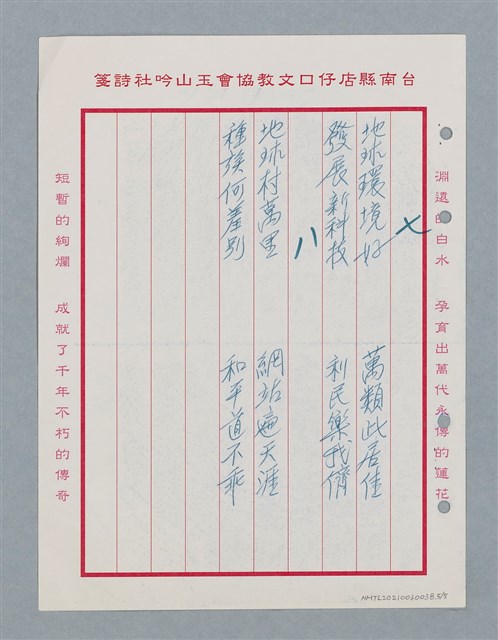 台南縣店仔口文教協會玉山吟社詩箋
淵遠的白水　孕育出萬代永傳的蓮花
七
地球環境好　萬類此居佳
發展新科技　利民樂我儕
八
地球村萬里　網站遍天涯
種族何差別　和平道不乖
短暫的絢爛　成就了千年不朽的傳奇
NMTL20210030038.5/8